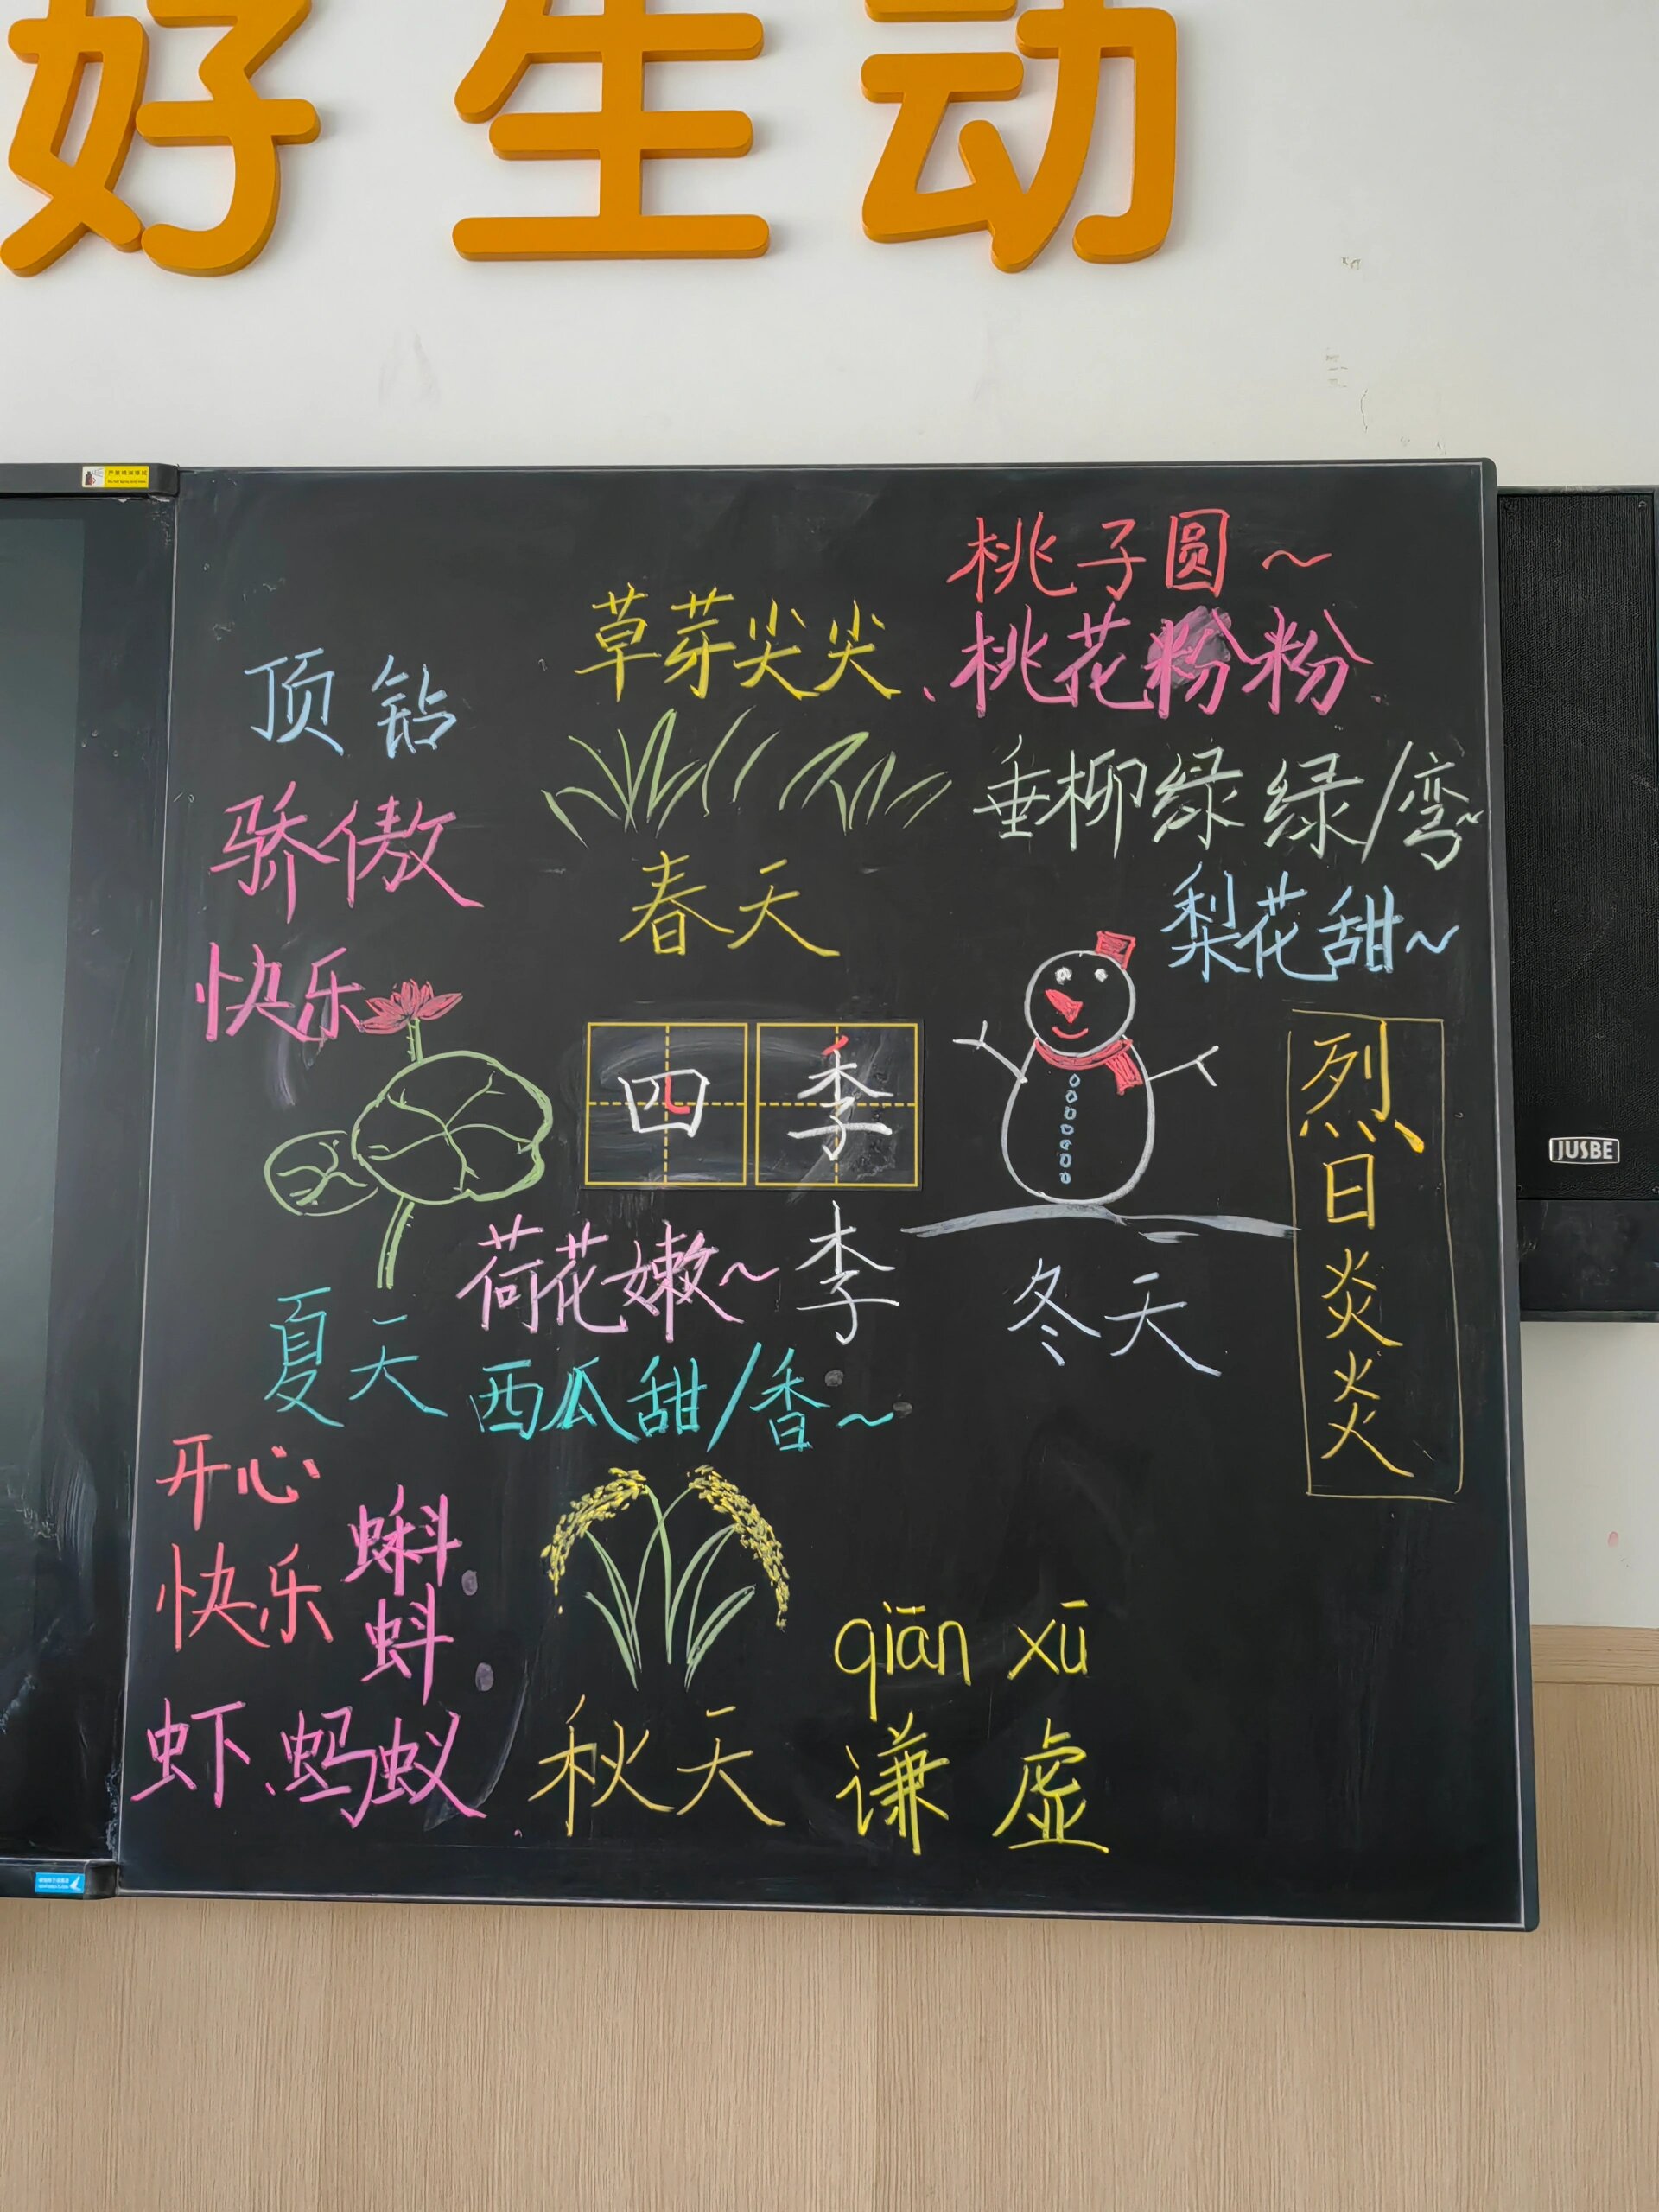 好生动
桃子圆～
草芽尖尖、桃花粉粉
顶 钻
垂柳绿绿/弯~
骄傲
春天
梨花甜~
快乐
四季
烈日炎炎
JUSBE
荷花嫩~
李
夏天
冬天
西瓜甜/香~
开心
快乐
蝌
蚪
qiān xū
虾、蚂蚁
秋天
谦虚